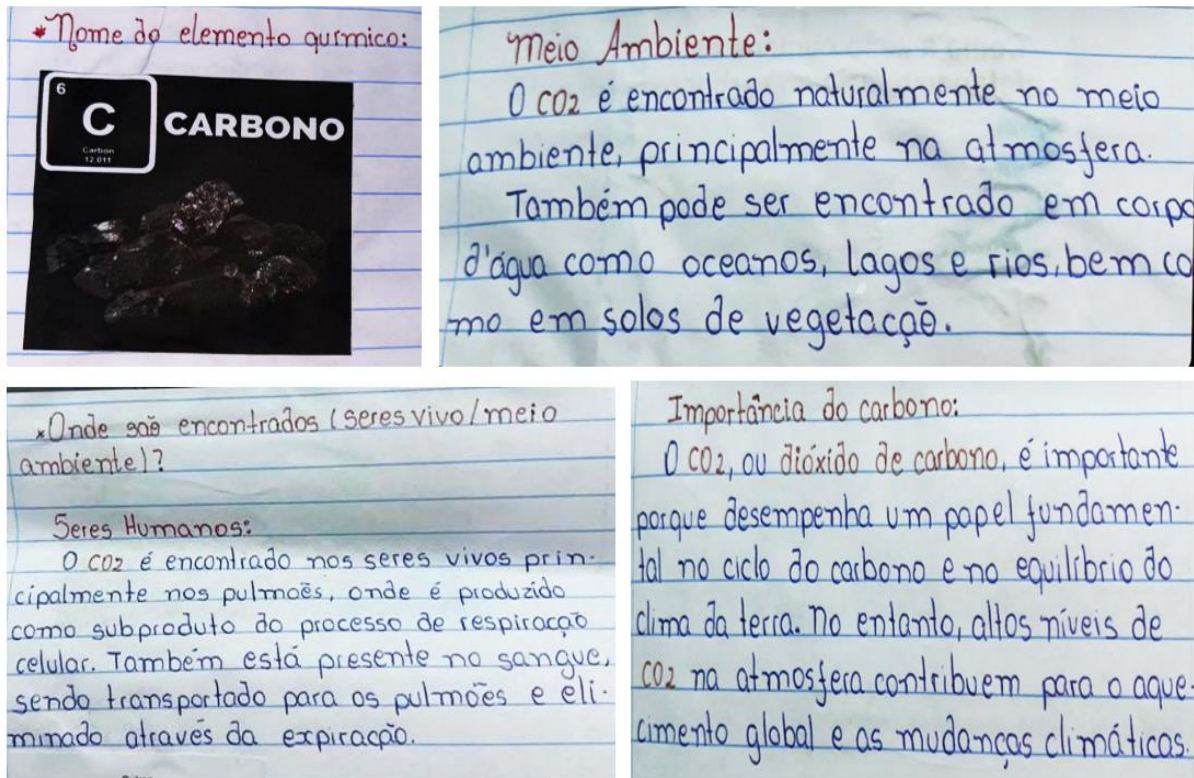 *Nome do elemento químico:
6
C
Carbon
12.011
CARBONO
Meio Ambiente:
O CO2 é encontrado naturalmente no meio
ambiente, principalmente na atmosfera.
Também pode ser encontrado em corpo
d'água como oceanos, lagos e rios, bem co
mo em solos de vegetação.
*Onde são encontrados (seres vivo/meio
ambiente)?
Seres Humanos:
O CO2 é encontrado nos seres vivos prin-
cipalmente nos pulmões, onde é produzido
como subproduto do processo de respiração
celular. Também está presente no sangue,
sendo transportado para os pulmões e eli-
minado através da expiração.
Importância do carbono:
O CO2, ou dióxido de carbono, é importante
porque desempenha um papel fundamen-
tal no ciclo do carbono e no equilíbrio do
clima da terra. No entanto, altos níveis de
CO2 na atmosfera contribuem para o aque-
cimento global e as mudanças climáticas.